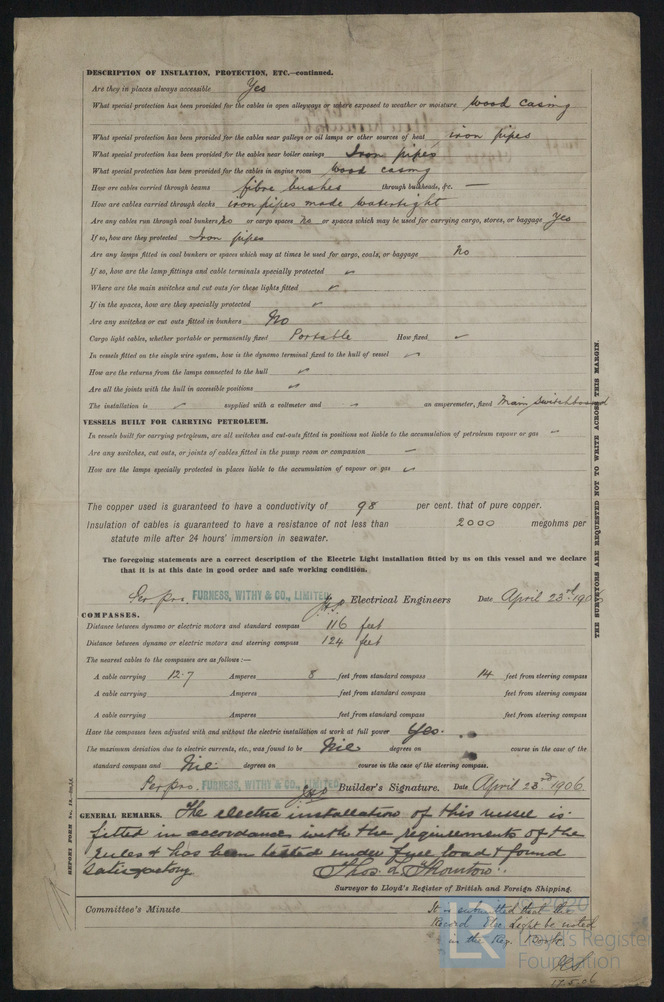 DESCRIPTION OF INSULATION, PROTECTION, ETC.—continued.
Are they in places always accessible Yes
What special protection has been provided for the cables in open alleyways or where exposed to weather or moisture wood casing
What special protection has been provided for the cables near galleys or oil lamps or other sources of heat iron pipes
What special protection has been provided for the cables near boiler casings Iron pipes
What special protection has been provided for the cables in engine room wood casing
How are cables carried through beams fibre bushes through bulkheads, &c. —
How are cables carried through decks iron pipes made watertight
Are any cables run through coal bunkers No or cargo spaces No or spaces which may be used for carrying cargo, stores, or baggage Yes
If so, how are they protected Iron pipes
Are any lamps fitted in coal bunkers or spaces which may at times be used for cargo, coals, or baggage No
If so, how are the lamp fittings and cable terminals specially protected ✓
Where are the main switches and cut outs for these lights fitted ✓
If in the spaces, how are they specially protected ✓
Are any switches or cut outs fitted in bunkers No
Cargo light cables, whether portable or permanently fixed Portable How fixed ✓
In vessels fitted on the single wire system, how is the dynamo terminal fixed to the hull of vessel ✓
How are the returns from the lamps connected to the hull ✓
Are all the joints with the hull in accessible positions ✓
The installation is ✓ supplied with a voltmeter and ✓ an amperemeter, fixed Main Switchboard
VESSELS BUILT FOR CARRYING PETROLEUM.
In vessels built for carrying petroleum, are all switches and cut-outs fitted in positions not liable to the accumulation of petroleum vapour or gas ✓
Are any switches, cut outs, or joints of cables fitted in the pump room or companion ✓
How are the lamps specially protected in places liable to the accumulation of vapour or gas ✓
The copper used is guaranteed to have a conductivity of 98 per cent. that of pure copper.
Insulation of cables is guaranteed to have a resistance of not less than 2000 megohms per
statute mile after 24 hours' immersion in seawater.
The foregoing statements are a correct description of the Electric Light installation fitted by us on this vessel and we declare
that it is at this date in good order and safe working condition.
Per pro. FURNESS, WITHY & CO., LIMITED Electrical Engineers Date April 23rd 1906
COMPASSES.
Distance between dynamo or electric motors and standard compass 116 feet
Distance between dynamo or electric motors and steering compass 124 feet
The nearest cables to the compasses are as follows:—
A cable carrying 12.7 Amperes 8 feet from standard compass 14 feet from steering compass
A cable carrying Amperes feet from standard compass feet from steering compass
A cable carrying Amperes feet from standard compass feet from steering compass
Have the compasses been adjusted with and without the electric installation at work at full power Yes.
The maximum deviation due to electric currents, etc., was found to be Nil degrees on course in the case of the
standard compass and Nil degrees on course in the case of the steering compass.
Per pro. FURNESS, WITHY & CO., LIMITED Builder's Signature. Date April 23rd 1906.
GENERAL REMARKS. The electric installation of this vessel is
fitted in accordance with the requirements of the
rules & has been tested under full load & found
satisfactory Thos. A. Thornton.
Surveyor to Lloyd's Register of British and Foreign Shipping.
Committee's Minute
It is submitted that the
Record Elec. Light be noted
in the Reg. Book.
17.5.06
THE SURVEYORS ARE REQUESTED NOT TO WRITE ACROSS THIS MARGIN.
LR
2020
Lloyd's Register
Foundation